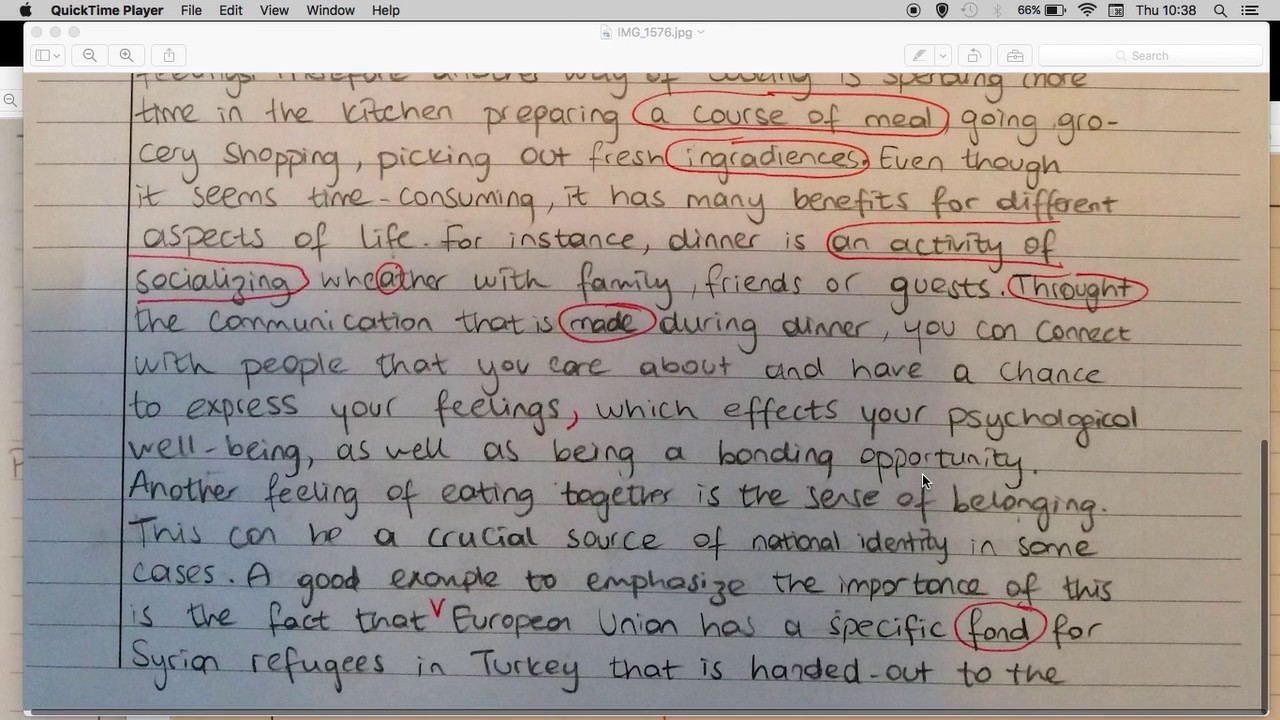 QuickTime Player File Edit View Window Help 66% Thu 10:38
IMG_1576.jpg
Search
feelings. Therefore another way of looking is spending more
time in the kitchen preparing a course of meal, going gro-
cery shopping, picking out fresh ingradiences. Even though
it seems time-consuming, it has many benefits for different
aspects of life. For instance, dinner is an activity of
socializing wheather with family, friends or guests. Throught
the communication that is made during dinner, you can connect
with people that you care about and have a chance
to express your feelings, which effects your psychological
well-being, as well as being a bonding opportunity.
Another feeling of eating together is the sense of belonging.
This can be a crucial source of national identity in some
cases. A good example to emphasize the importance of this
is the fact that European Union has a specific fond for
Syrian refugees in Turkey that is handed-out to the